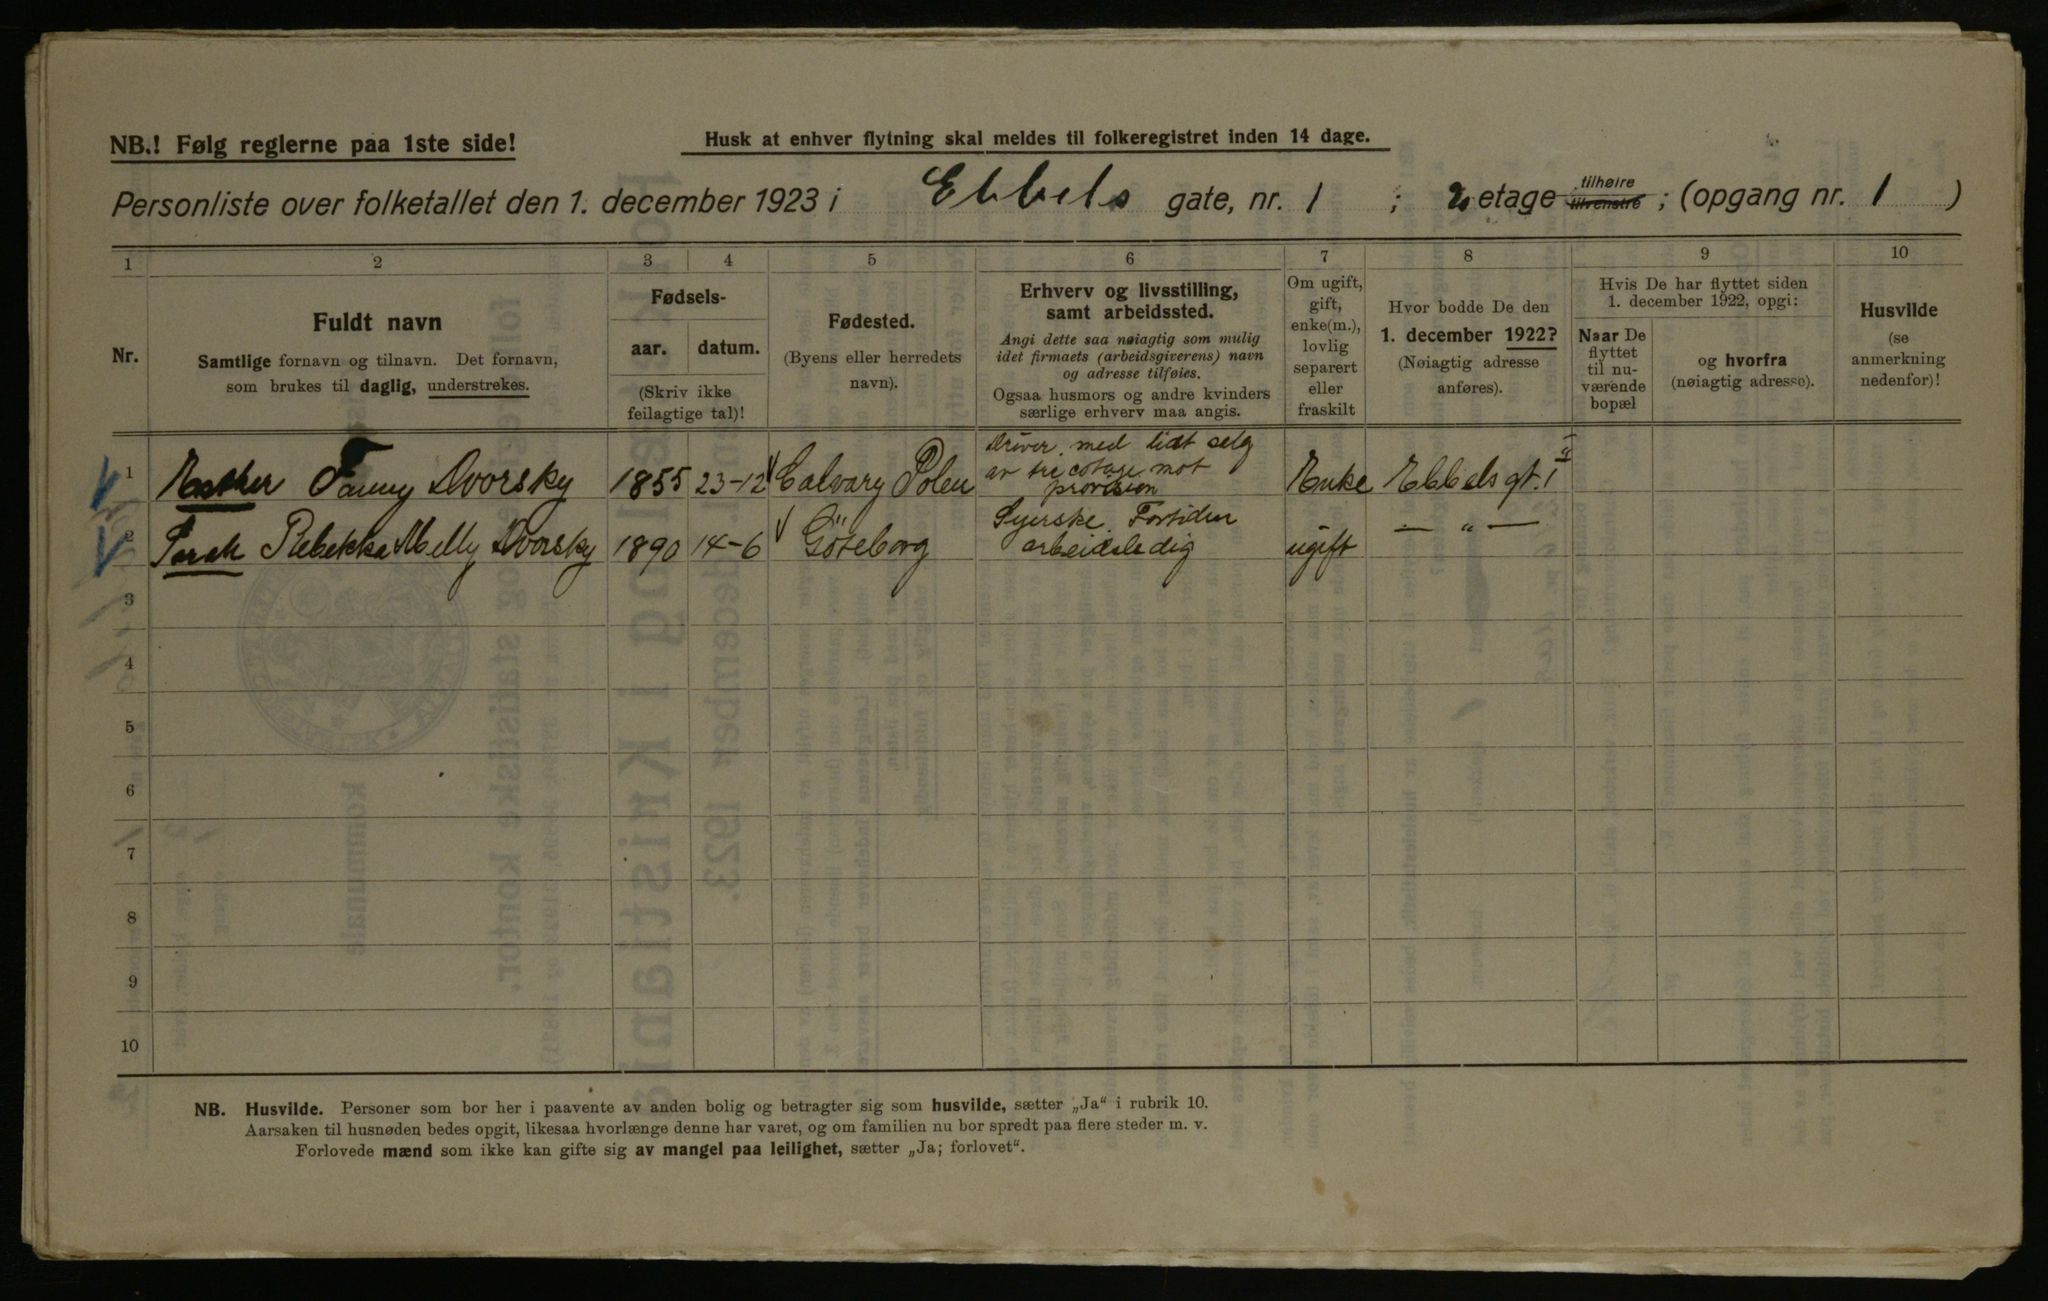 NB.! Følg reglerne paa 1ste side!
Husk at enhver flytning skal meldes til folkeregistret inden 14 dage.
Personliste over folketallet den 1. december 1923 i Ebbels gate, nr. 1 ; 2 etage tilhøire tilvenstre ; (opgang nr. 1 )
1 2 3 4 5 6 7 8 9 10
Nr.
Fuldt navn
Samtlige fornavn og tilnavn. Det fornavn,
som brukes til daglig, understrekes.
Fødsels-
aar. datum.
(Skriv ikke
feilagtige tal)!
Fødested.
(Byens eller herredets
navn).
Erhverv og livsstilling,
samt arbeidssted.
Angi dette saa nøiagtig som mulig
idet firmaets (arbeidsgiverens) navn
og adresse tilføies.
Ogsaa husmors og andre kvinders
særlige erhverv maa angis.
Om ugift,
gift,
enke(m.),
lovlig
separert
eller
fraskilt
Hvor bodde De den
1. december 1922?
(Nøiagtig adresse
anføres).
Hvis De har flyttet siden
1. december 1922, opgi:
Naar De
flyttet
til nu-
værende
bopæl
og hvorfra
(nøiagtig adresse).
Husvilde
(se
anmerkning
nedenfor)!
1 Esther Fanny Dvorsky 1855 23-12 Calvary Polen
Driver med lidt salg
av tricotage mot
provision
Enke Ebbels gt. 1 II
2 Sarah Rebekka Melly Dvorsky 1890 14-6 Göteborg
Syerske. Fortiden
arbeidsledig
ugift — „ —
3
4
5
6
7
8
9
10
NB. Husvilde. Personer som bor her i paavente av anden bolig og betragter sig som husvilde, sætter „Ja“ i rubrik 10.
Aarsaken til husnøden bedes opgit, likesaa hvorlænge denne har varet, og om familien nu bor spredt paa flere steder m. v.
Forlovede mænd som ikke kan gifte sig av mangel paa leilighet, sætter „Ja; forlovet“.